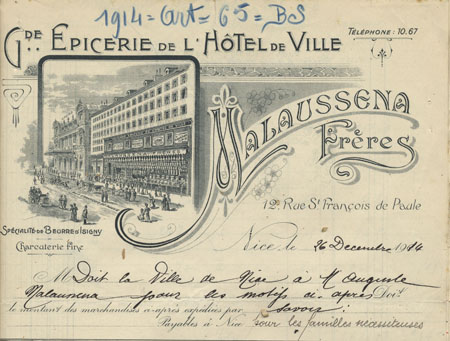 1914 = Art = 65 = BS
Gde EPICERIE DE L'HÔTEL DE VILLE
TÉLÉPHONE: 10.67
MALAUSSENA
FRÈRES
12, Rue St François de Paule
SPÉCIALITÉ DE BEURRE D'ISIGNY
Charcuterie Fine
Nice le 26 Decembre 1914
M Doit la Ville de Nice à M Auguste
Malaussena pour les motifs ci-après Doit
le montant des marchandises ci-après expédiées par savoir
Payables à Nice pour les familles nécessiteuses